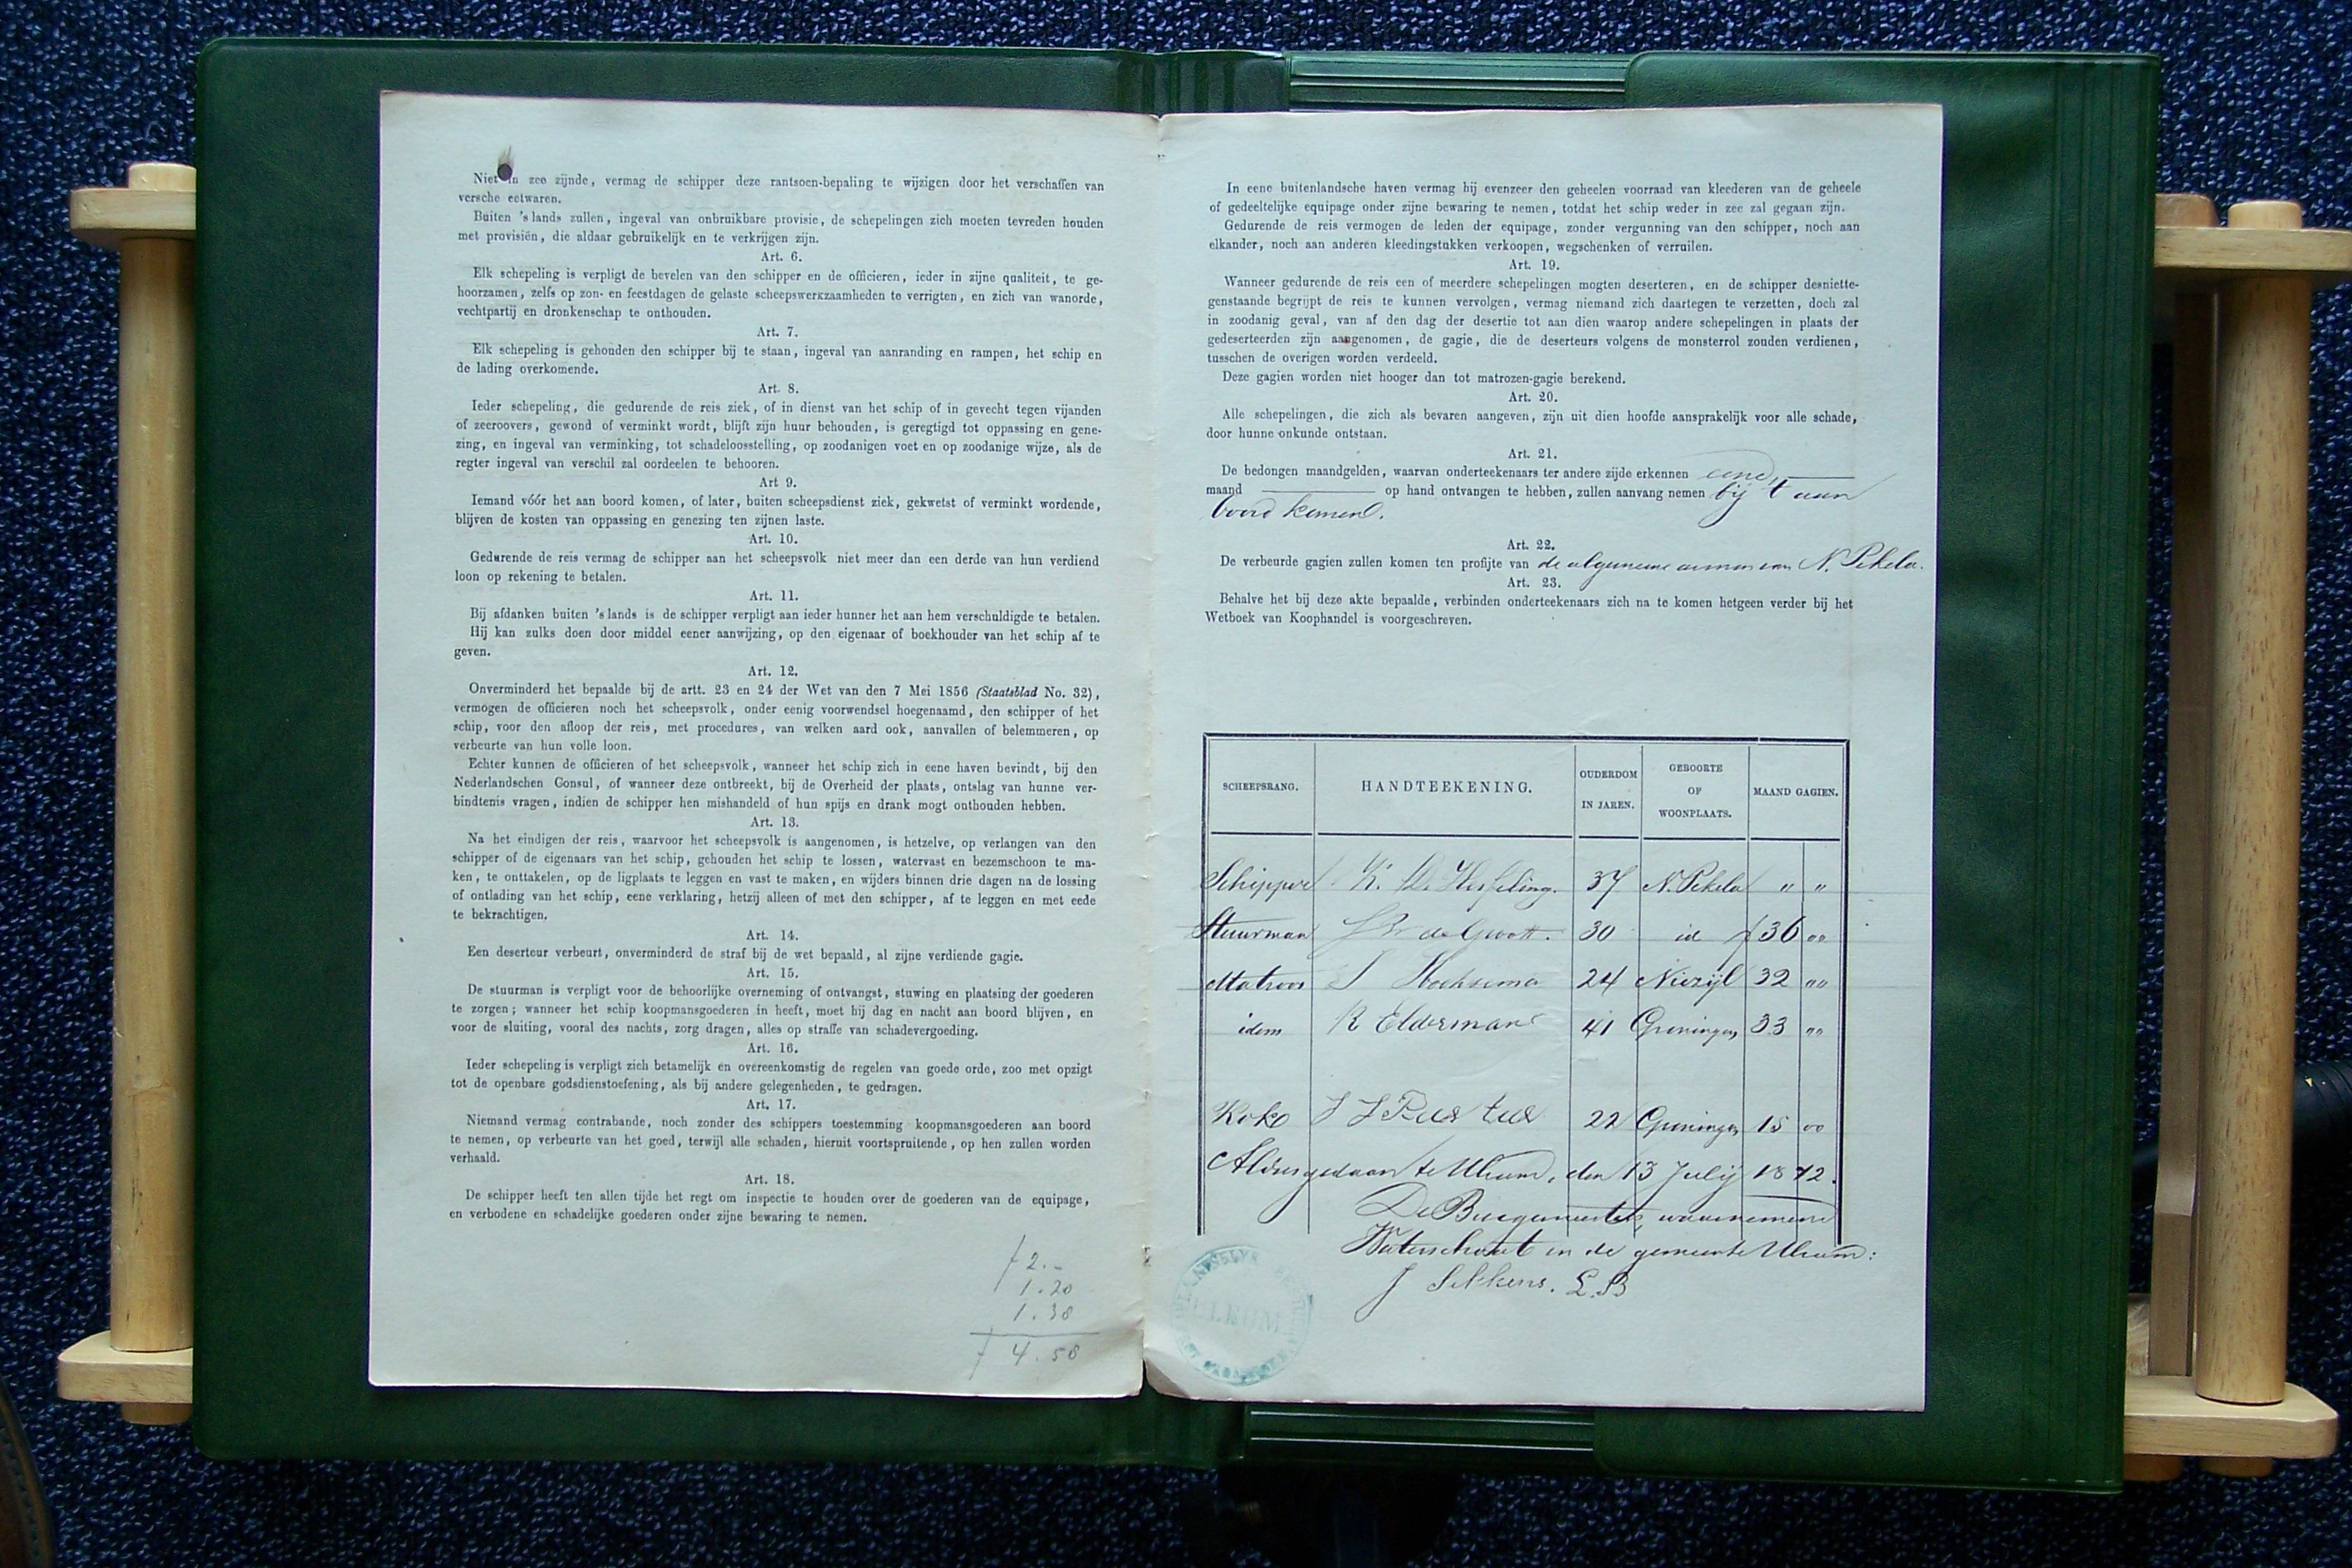 Niet in zee zijnde, vermag de schipper deze rantsoen-bepaling te wijzigen door het verschaffen van
versche eetwaren.
Buiten 's lands zullen, ingeval van onbruikbare provisie, de schepelingen zich moeten tevreden houden
met provisiën, die aldaar gebruikelijk en te verkrijgen zijn.
Art. 6.
Elk schepeling is verpligt de bevelen van den schipper en de officieren, ieder in zijne qualiteit, te ge-
hoorzamen, zelfs op zon- en feestdagen de gelaste scheepswerkzaamheden te verrigten, en zich van wanorde,
vechtpartij en dronkenschap te onthouden.
Art. 7.
Elk schepeling is gehouden den schipper bij te staan, ingeval van aanranding en rampen, het schip en
de lading overkomende.
Art. 8.
Ieder schepeling, die gedurende de reis ziek, of in dienst van het schip of in gevecht tegen vijanden
of zeeroovers, gewond of verminkt wordt, blijft zijn huur behouden, is geregtigd tot oppassing en gene-
zing, en ingeval van verminking, tot schadeloosstelling, op zoodanigen voet en op zoodanige wijze, als de
regter ingeval van verschil zal oordeelen te behooren.
Art 9.
Iemand vóór het aan boord komen, of later, buiten scheepsdienst ziek, gekwetst of verminkt wordende,
blijven de kosten van oppassing en genezing ten zijnen laste.
Art. 10.
Gedurende de reis vermag de schipper aan het scheepsvolk niet meer dan een derde van hun verdiend
loon op rekening te betalen.
Art. 11.
Bij afdanken buiten 's lands is de schipper verpligt aan ieder hunner het aan hem verschuldigde te betalen.
Hij kan zulks doen door middel eener aanwijzing, op den eigenaar of boekhouder van het schip af te
geven.
Art. 12.
Onverminderd het bepaalde bij de artt. 23 en 24 der Wet van den 7 Mei 1856 (Staatsblad No. 32),
vermogen de officieren noch het scheepsvolk, onder eenig voorwendsel hoegenaamd, den schipper of het
schip, voor den afloop der reis, met procedures, van welken aard ook, aanvallen of belemmeren, op
verbeurte van hun volle loon.
Echter kunnen de officieren of het scheepsvolk, wanneer het schip zich in eene haven bevindt, bij den
Nederlandschen Consul, of wanneer deze ontbreekt, bij de Overheid der plaats, ontslag van hunne ver-
bindtenis vragen, indien de schipper hen mishandeld of hun spijs en drank mogt onthouden hebben.
Art. 13.
Na het eindigen der reis, waarvoor het scheepsvolk is aangenomen, is hetzelve, op verlangen van den
schipper of de eigenaars van het schip, gehouden het schip te lossen, watervast en bezemschoon te ma-
ken, te onttakelen, op de ligplaats te leggen en vast te maken, en wijders binnen drie dagen na de lossing
of ontlading van het schip, eene verklaring, hetzij alleen of met den schipper, af te leggen en met eede
te bekrachtigen.
Art. 14.
Een deserteur verbeurt, onverminderd de straf bij de wet bepaald, al zijne verdiende gagie.
Art. 15.
De stuurman is verpligt voor de behoorlijke overneming of ontvangst, stuwing en plaatsing der goederen
te zorgen; wanneer het schip koopmansgoederen in heeft, moet hij dag en nacht aan boord blijven, en
voor de sluiting, vooral des nachts, zorg dragen, alles op straffe van schadevergoeding.
Art. 16.
Ieder schepeling is verpligt zich betamelijk en overeenkomstig de regelen van goede orde, zoo met opzigt
tot de openbare godsdienstoefening, als bij andere gelegenheden, te gedragen.
Art. 17.
Niemand vermag contrabande, noch zonder des schippers toestemming koopmansgoederen aan boord
te nemen, op verbeurte van het goed, terwijl alle schaden, hieruit voortspruitende, op hen zullen worden
verhaald.
Art. 18.
De schipper heeft ten allen tijde het regt om inspectie te houden over de goederen van de equipage,
en verbodene en schadelijke goederen onder zijne bewaring te nemen.
f 2.-
1.20
1.38
f 4.58
In eene buitenlandsche haven vermag hij evenzeer den geheelen voorraad van kleederen van de geheele
of gedeeltelijke equipage onder zijne bewaring te nemen, totdat het schip weder in zee zal gegaan zijn.
Gedurende de reis vermogen de leden der equipage, zonder vergunning van den schipper, noch aan
elkander, noch aan anderen kleedingstukken verkoopen, wegschenken of verruilen.
Art. 19.
Wanneer gedurende de reis een of meerdere schepelingen mogten deserteren, en de schipper desniette-
genstaande begrijpt de reis te kunnen vervolgen, vermag niemand zich daartegen te verzetten, doch zal
in zoodanig geval, van af den dag der desertie tot aan dien waarop andere schepelingen in plaats der
gedeserteerden zijn aangenomen, de gagie, die de deserteurs volgens de monsterrol zouden verdienen,
tusschen de overigen worden verdeeld.
Deze gagien worden niet hooger dan tot matrozen-gagie berekend.
Art. 20.
Alle schepelingen, die zich als bevaren aangeven, zijn uit dien hoofde aansprakelijk voor alle schade,
door hunne onkunde ontstaan.
Art. 21.
De bedongen maandgelden, waarvan onderteekenaars ter andere zijde erkennen eene
maand op hand ontvangen te hebben, zullen aanvang nemen bij 't aan
boord komen.
Art. 22.
De verbeurde gagien zullen komen ten profijte van de algemeene armen van N. Pekela.
Art. 23.
Behalve het bij deze akte bepaalde, verbinden onderteekenaars zich na te komen hetgeen verder bij het
Wetboek van Koophandel is voorgeschreven.
SCHEEPSRANG. HANDTEEKENING. OUDERDOM IN JAREN. GEBOORTE OF WOONPLAATS. MAAND GAGIEN.
Schipper K. D. Hesseling. 37 N. Pekela " "
Stuurman de Groot. 30 id f 36 00
Matroos Hoeksema 24 Niezijl 32 ""
idem R Elderman 41 Groningen 33 ""
Kok J J 22 Groningen 15 00
Aldus gedaan te Ulrum, den 13 Julij 1872.
De Burgemeester, waarnemend
Waterschout in de gemeente Ulrum:
J Sikkens. L.B
ULRUM